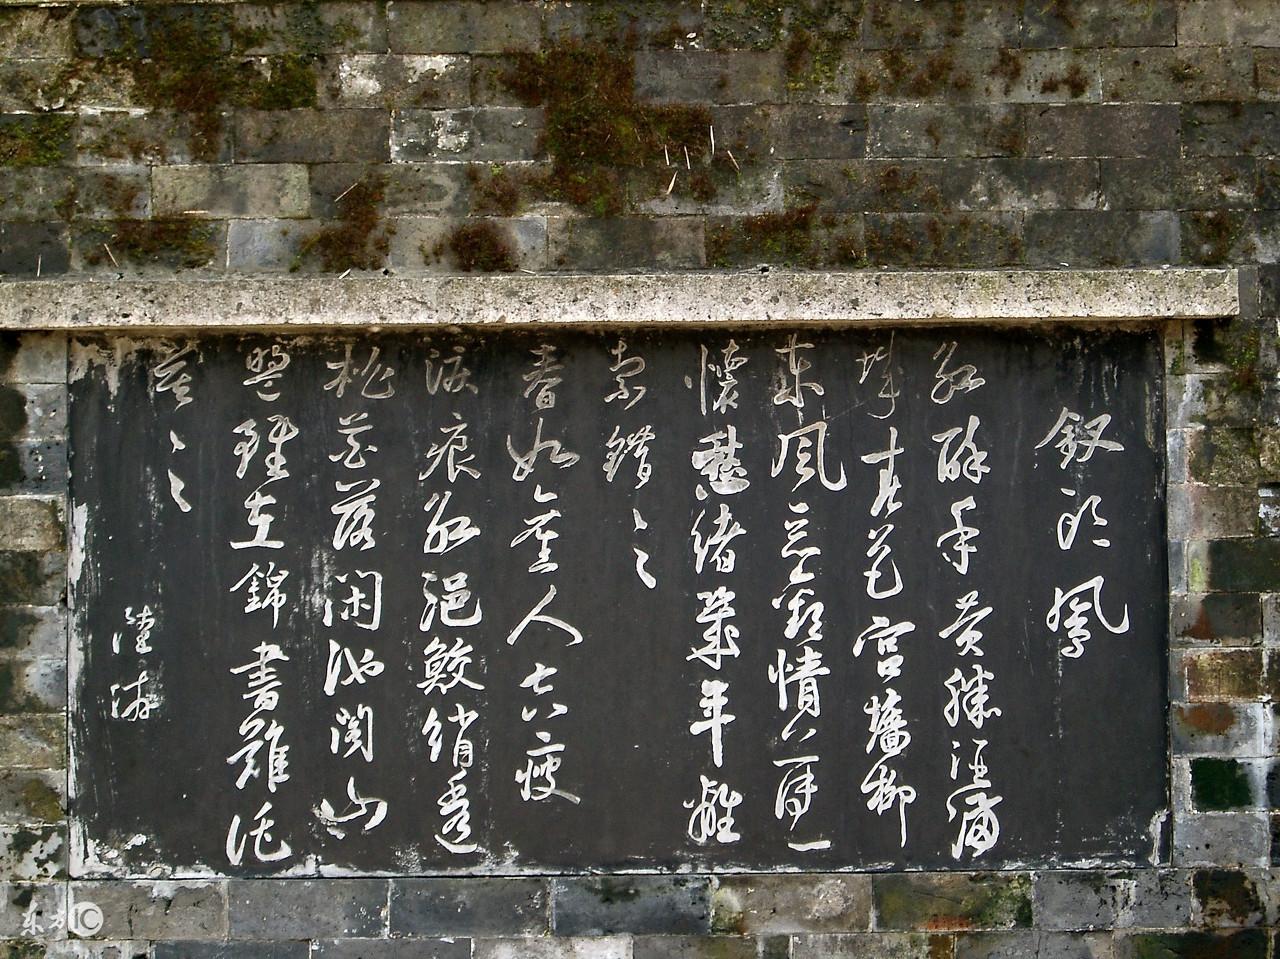 釵頭鳳
紅酥手黄縢酒滿
城春色宮墻柳
東風惡歡情薄一
懷愁緒幾年離
索錯〻〻
春如舊人空瘦
淚痕紅浥鮫綃透
桃花落閑池閣山
盟雖在錦書難託
莫〻〻
陸游
东方IC